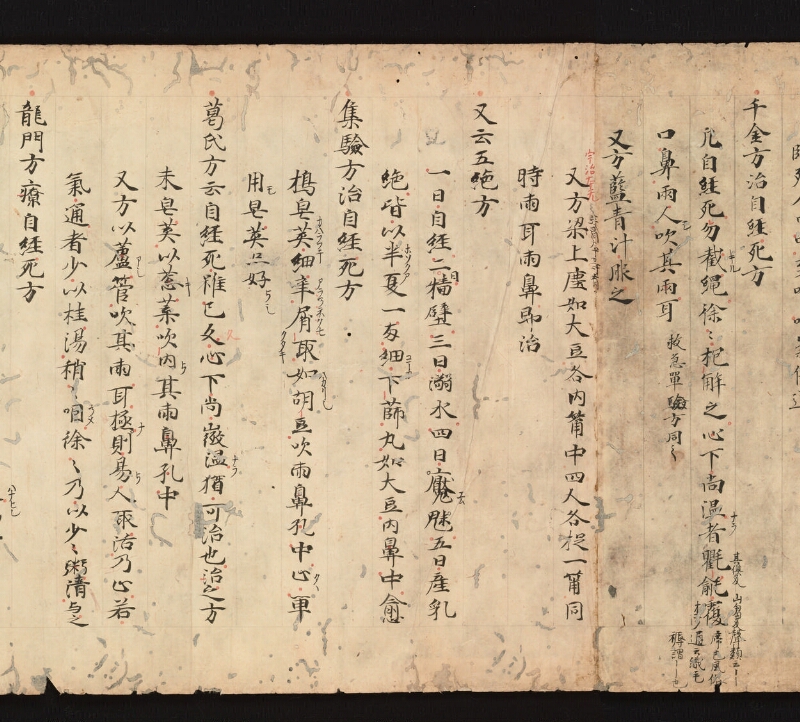 千金方治自經死方
凡自經死勿截繩徐〻抱解之心下尚温者氍毹覆
口鼻兩人吹其兩耳 救急單驗方同之
又方藍青汁服之
又方梁上塵如大豆各内筩中四人各捉一筩同
時兩耳兩鼻即治
又云五絶方
一曰自經二曰牆壁三曰溺水四曰魘魅五曰産乳
絶皆以半夏一兩細下篩丸如大豆内鼻中愈
集驗方治自經死方
搗皂莢細辛屑取如胡豆吹兩鼻孔中心單
用皂莢亦好
葛氏方云自經死雖已久心下尚微温猶可治也治之方
末皂莢以葱葉吹内其兩鼻孔中
又方以蘆管吹其兩耳極則易人取活乃止若
氣通者少以桂湯稍〻咽徐〻乃以少〻粥清与之
龍門方療自經死方